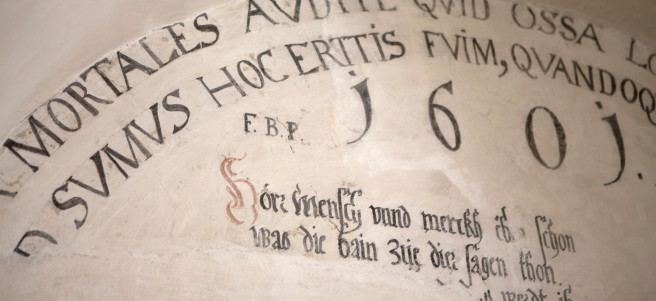 MORTALES AVDITE QVID OSSA LO
D SVMVS HOC ERITIS FVIM, QVANDOQ
F. B. P.
j 6 0 j.
Hör Mensch vnnd merckh schon
Was die bain Zue dier sagen thon.